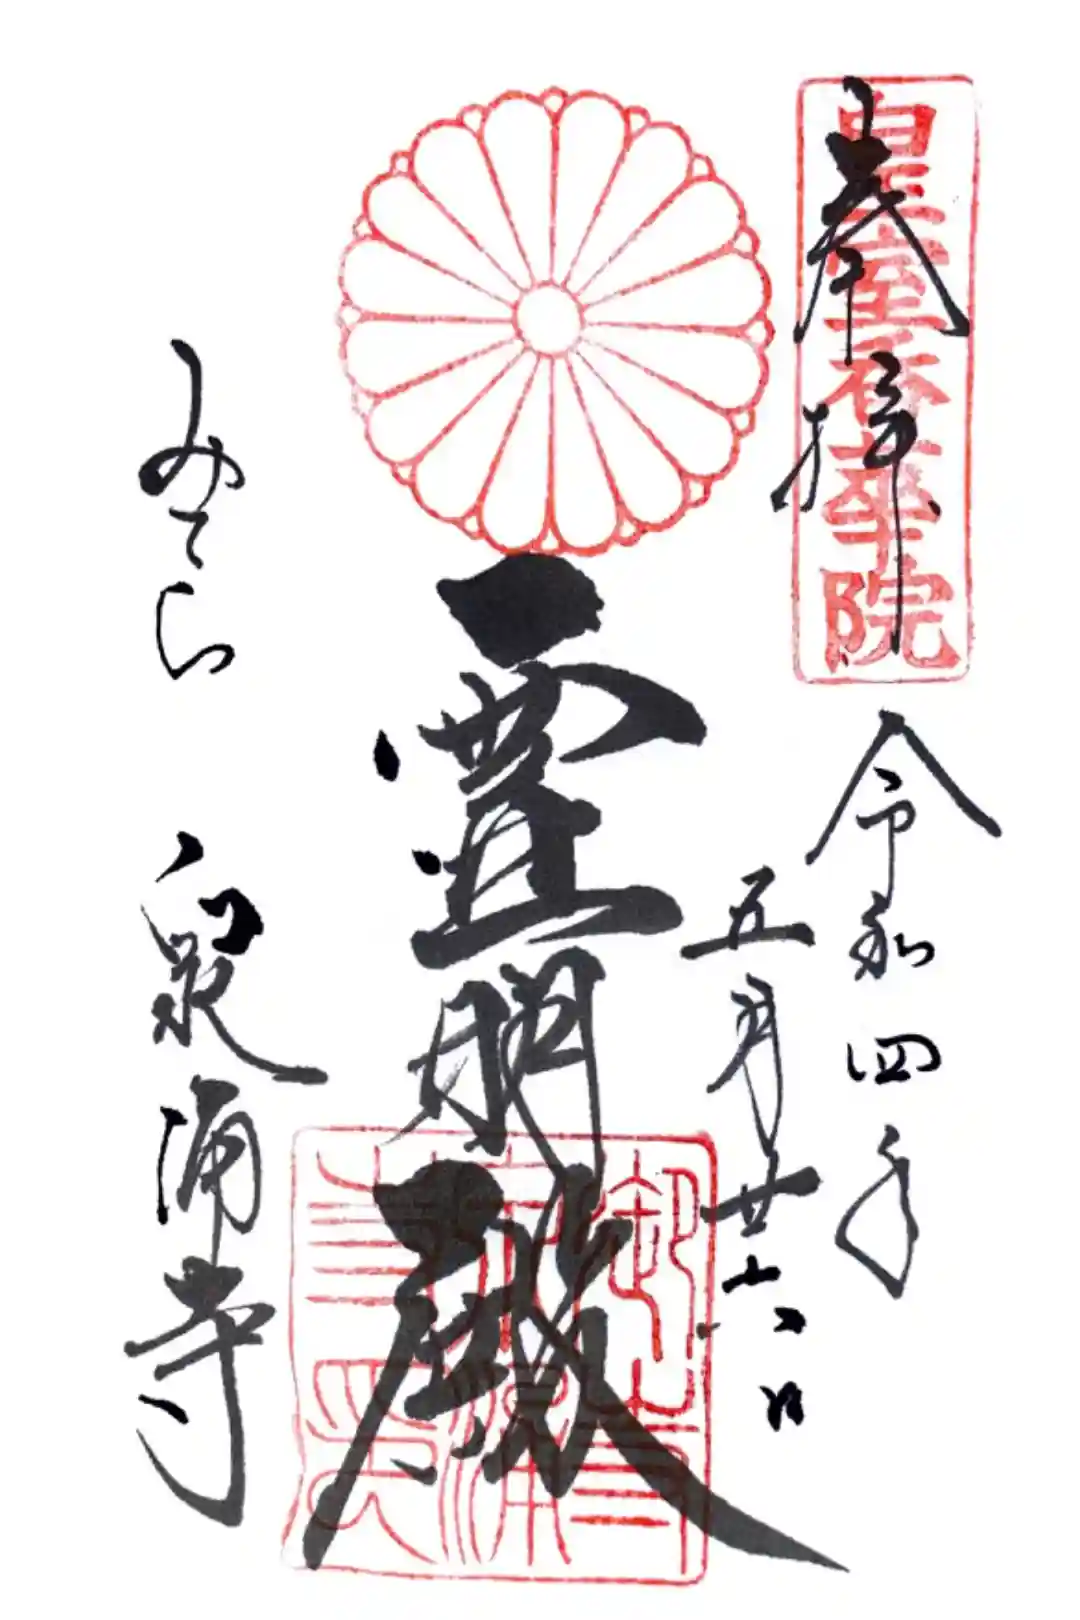 皇室香華院
奉拝
令和四年
五月廿六日
霊明殿
みてら 泉涌寺